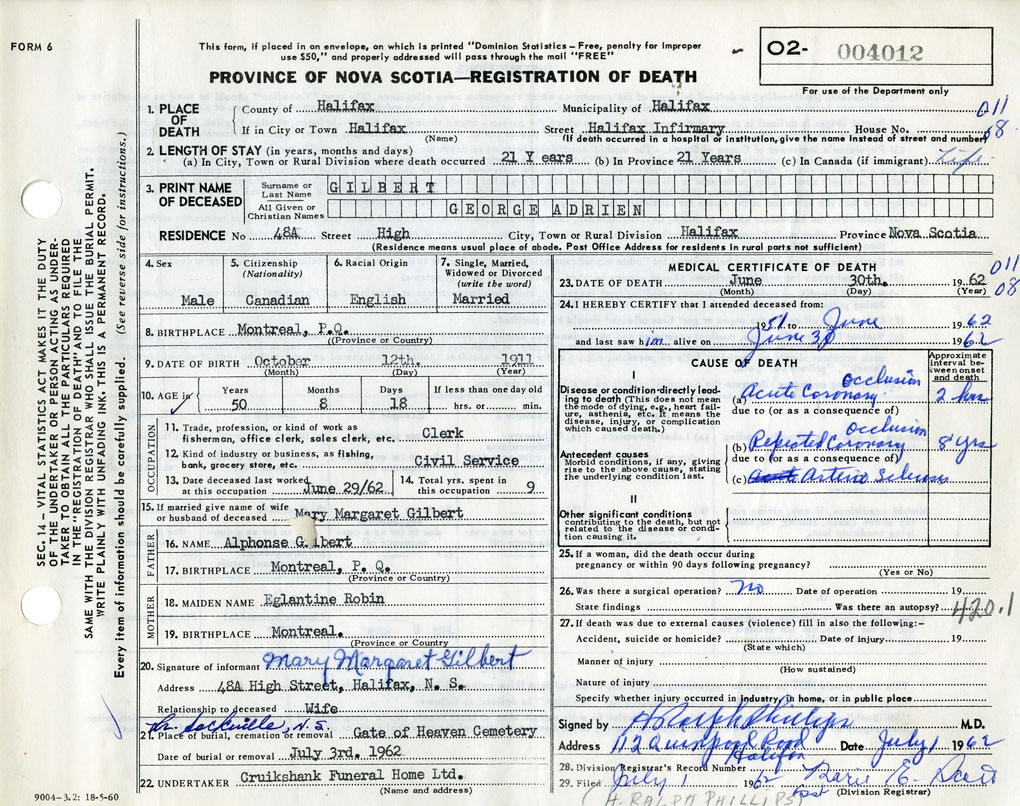 FORM 6
This form, if placed in an envelope, on which is printed "Dominion Statistics – Free, penalty for improper
use $50," and properly addressed will pass through the mail "FREE"
O2- 004012
For use of the Department only
PROVINCE OF NOVA SCOTIA—REGISTRATION OF DEATH
SEC. 14 – VITAL STATISTICS ACT MAKES IT THE DUTY
OF THE UNDERTAKER OR PERSON ACTING AS UNDER-
TAKER TO OBTAIN ALL THE PARTICULARS REQUIRED
IN THE "REGISTRATION OF DEATH" AND TO FILE THE
SAME WITH THE DIVISION REGISTRAR WHO SHALL ISSUE THE BURIAL PERMIT.
WRITE PLAINLY WITH UNFADING INK. THIS IS A PERMANENT RECORD.
Every item of information should be carefully supplied. (See reverse side for instructions.)
1. PLACE OF DEATH
County of Halifax Municipality of Halifax 011
If in City or Town Halifax Street Halifax Infirmary House No. 08
(Name) (If death occurred in a hospital or institution, give the name instead of street and number)
2. LENGTH OF STAY (in years, months and days)
(a) In City, Town or Rural Division where death occurred 21 Years (b) In Province 21 Years (c) In Canada (if immigrant) Life
3. PRINT NAME OF DECEASED
Surname or Last Name GILBERT
All Given or Christian Names GEORGE ADRIEN
RESIDENCE No 48A Street High City, Town or Rural Division Halifax Province Nova Scotia
(Residence means usual place of abode. Post Office Address for residents in rural parts not sufficient)
4. Sex
Male
5. Citizenship
(Nationality)
Canadian
6. Racial Origin
English
7. Single, Married,
Widowed or Divorced
(write the word)
Married
8. BIRTHPLACE Montreal, P.Q.
(Province or Country)
9. DATE OF BIRTH October 12th. 1911
(Month) (Day) (Year)
10. AGE in
Years Months Days If less than one day old
50 8 18 hrs. or min.
OCCUPATION
11. Trade, profession, or kind of work as
fisherman, office clerk, sales clerk, etc. Clerk
12. Kind of industry or business, as fishing,
bank, grocery store, etc. Civil Service
13. Date deceased last worked
at this occupation June 29/62
14. Total yrs. spent in
this occupation 9
15. If married give name of wife
or husband of deceased Mary Margaret Gilbert
FATHER
16. NAME Alphonse G lbert
17. BIRTHPLACE Montreal, P. Q.
(Province or Country)
MOTHER
18. MAIDEN NAME Eglantine Robin
19. BIRTHPLACE Montreal.
(Province or Country)
20. Signature of informant Mary Margaret Gilbert
Address 48A High Street, Halifax, N. S.
Relationship to deceased Wife
Sackville, N.S.
21. Place of burial, cremation or removal Gate of Heaven Cemetery
Date of burial or removal July 3rd. 1962
22. UNDERTAKER Cruikshank Funeral Home Ltd.
(Name and address)
9004–3.2: 18-5-60
MEDICAL CERTIFICATE OF DEATH
011
08
23. DATE OF DEATH June 30th. 1962
(Month) (Day) (Year)
24. I HEREBY CERTIFY that I attended deceased from:
1951 to June 1962
and last saw him alive on June 30 1962
CAUSE OF DEATH
Approximate
interval be-
tween onset
and death
I
Disease or condition directly lead-
ing to death (This does not mean
the mode of dying, e.g., heart fail-
ure, asthenia, etc. It means the
disease, injury, or complication
which caused death.)
(a) Acute Coronary Occlusion 2 hrs
due to (or as a consequence of)
Antecedent causes
Morbid conditions, if any, giving
rise to the above cause, stating
the underlying condition last.
(b) Repeated Coronary Occlusion 8 yrs
due to (or as a consequence of)
(c) Acute Arterio Sclerosis
II
Other significant conditions
contributing to the death, but not
related to the disease or condi-
tion causing it.
25. If a woman, did the death occur during
pregnancy or within 90 days following pregnancy?
(Yes or No)
26. Was there a surgical operation? No Date of operation 19
State findings Was there an autopsy?
420.1
27. If death was due to external causes (violence) fill in also the following:–
Accident, suicide or homicide? Date of injury 19
(State which)
Manner of injury
(How sustained)
Nature of injury
Specify whether injury occurred in industry, in home, or in public place
Signed by H Ralph Phillips M.D.
Address 112 Quinpool Road Date July 1 1962
Halifax
28. Division Registrar's Record Number
29. Filed July 1 1962 Marie E.
(Division Registrar)
(H. RALPH PHILLIPS)